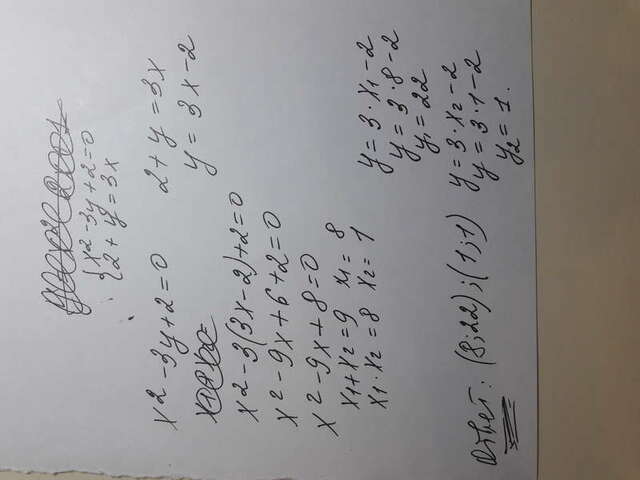 {x² - 3y + 2 = 0
2 + y = 3x
x² - 3y + 2 = 0
2 + y = 3x
y = 3x - 2
x² - 3(3x - 2) + 2 = 0
x² - 9x + 6 + 2 = 0
x² - 9x + 8 = 0
x₁ + x₂ = 9 x₁ = 8
x₁ · x₂ = 8 x₂ = 1
y = 3 · x₁ - 2
y = 3 · 8 - 2
y₁ = 22
y = 3 · x₂ - 2
y = 3 · 1 - 2
y₂ = 1.
Ответ: (8; 22); (1; 1)